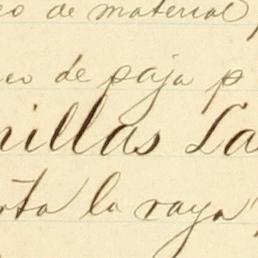 de material
de paja p
nillas La
rta la raya